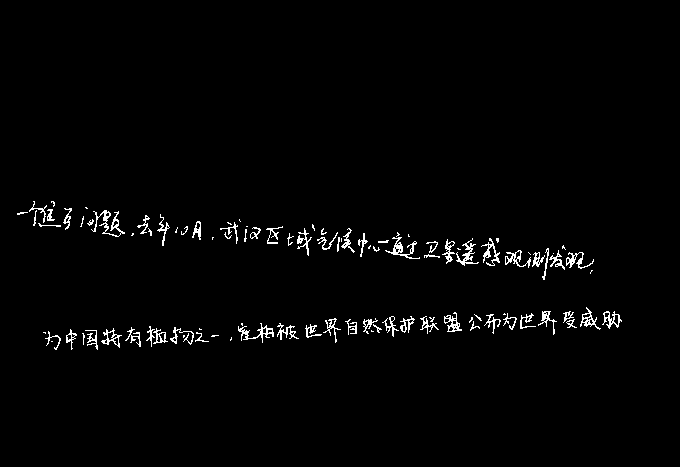 一个焦点问题。去年10月，武汉区域气候中心通过卫星遥感观测发现，
为中国特有植物之一，崖柏被世界自然保护联盟公布为世界受威胁